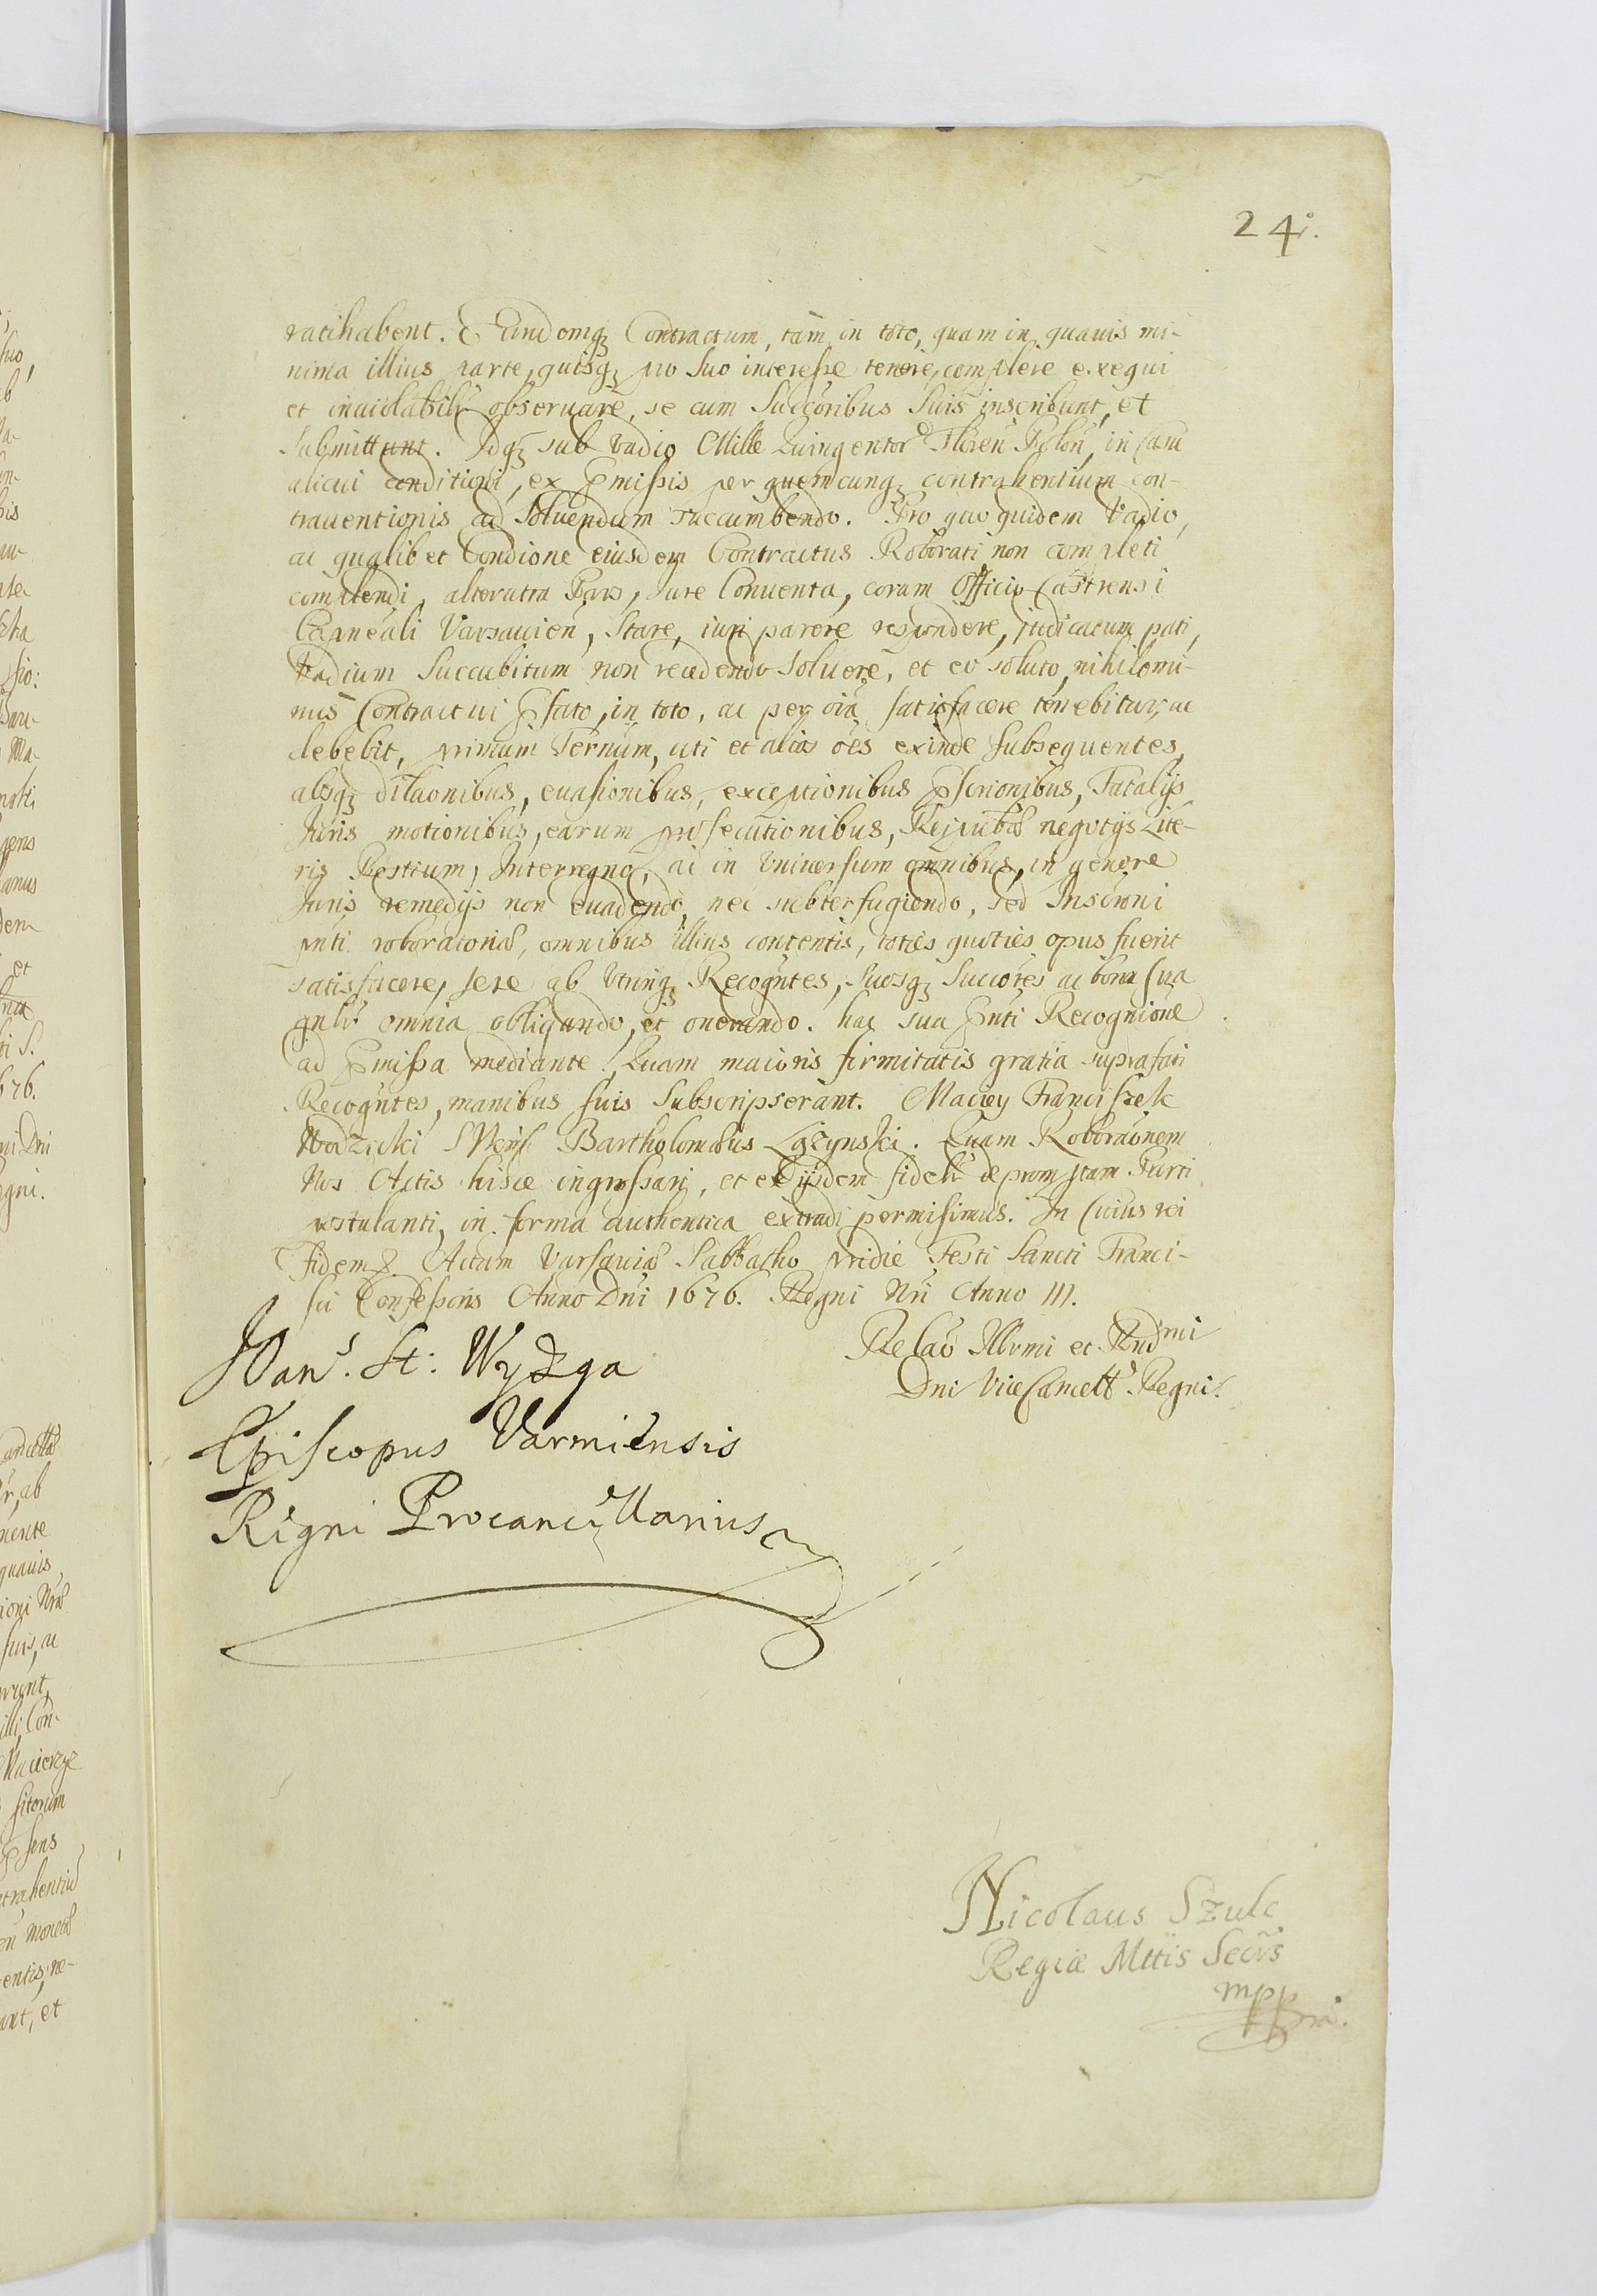 24.
ratihabent. Eundemq; Contractum, tam in toto, quam in quavis mi-
nima illius parte, quisq; pro suo interesse tenere, complere exequi
et inviolabilr observare, se cum Succoribus Suis inscribunt, et
Submittunt. Idq; sub vadio Mille Quingentor Floren Polon, in Casu
alicui conditioni, ex pmissis per quemcunq; contrahentium con-
traventionis ad Solvendum succumbendo. Pro quo quidem Vadio,
ac qualibet Condione eiusdem Contractus Roborati non completi
complendi, alterutra Pars, Jure Conventa, coram Officio Castrensi
Capneali Varsavien, Stare, iuri parere respondere, judicatum pati,
Vadium Succubitum non recedendo solvere, et eo soluto, nihilomi-
nus Contractui pfato, in toto, ac per oia satisfacere tenebitur, ac
debebit, primum Ternum, uti et alios oes exinde subsequentes,
absq; dilaonibus, evasionibus, exceptionibus pscrionibus, Fatalijs
Juris motionibus, earum prosecutionibus, Reipubae negotijs Lite-
ris Restium, Interregno, ac in Universum omnibus, in genere
Juris remedijs non evadendo, nec subterfugiendo, sed Inscrioni
pnti roboratoriae, omnibus illius contentis, toties quoties opus fuerit
satisfacere, sese ab Utrinq; Recogntes, Suosq; Succores ac bona sua
gnlr omnia obligando, et onerando. hac sua pnti Recognione
ad pmissa mediante. Quam maioris firmitatis gratia suprafati
Recogntes, manibus suis Subscripserant. Maciey Franciszek
Wodzicki Bartholomaeus Łączynski. Quam Roboraonem
Nos Actis hisce ingrossari, et ex ijsdem fidelr depromptam Parti
postulanti, in forma authentica extradi permisimus. In Cuius rei
fidem Actum Varsaviae Sabbatho pridie Festi Sancti Franci-
sci Confessoris Anno Dni 1676. Regni Nri Anno III.
Relao Illrmi et Rndmi
Dni ViceCancell. Regni.
Joan. St: Wydzga
Episcopus Varmiensis
Regni Procancellarius
Nicolaus Szulc
Regiae Mttis Secrs
mpp